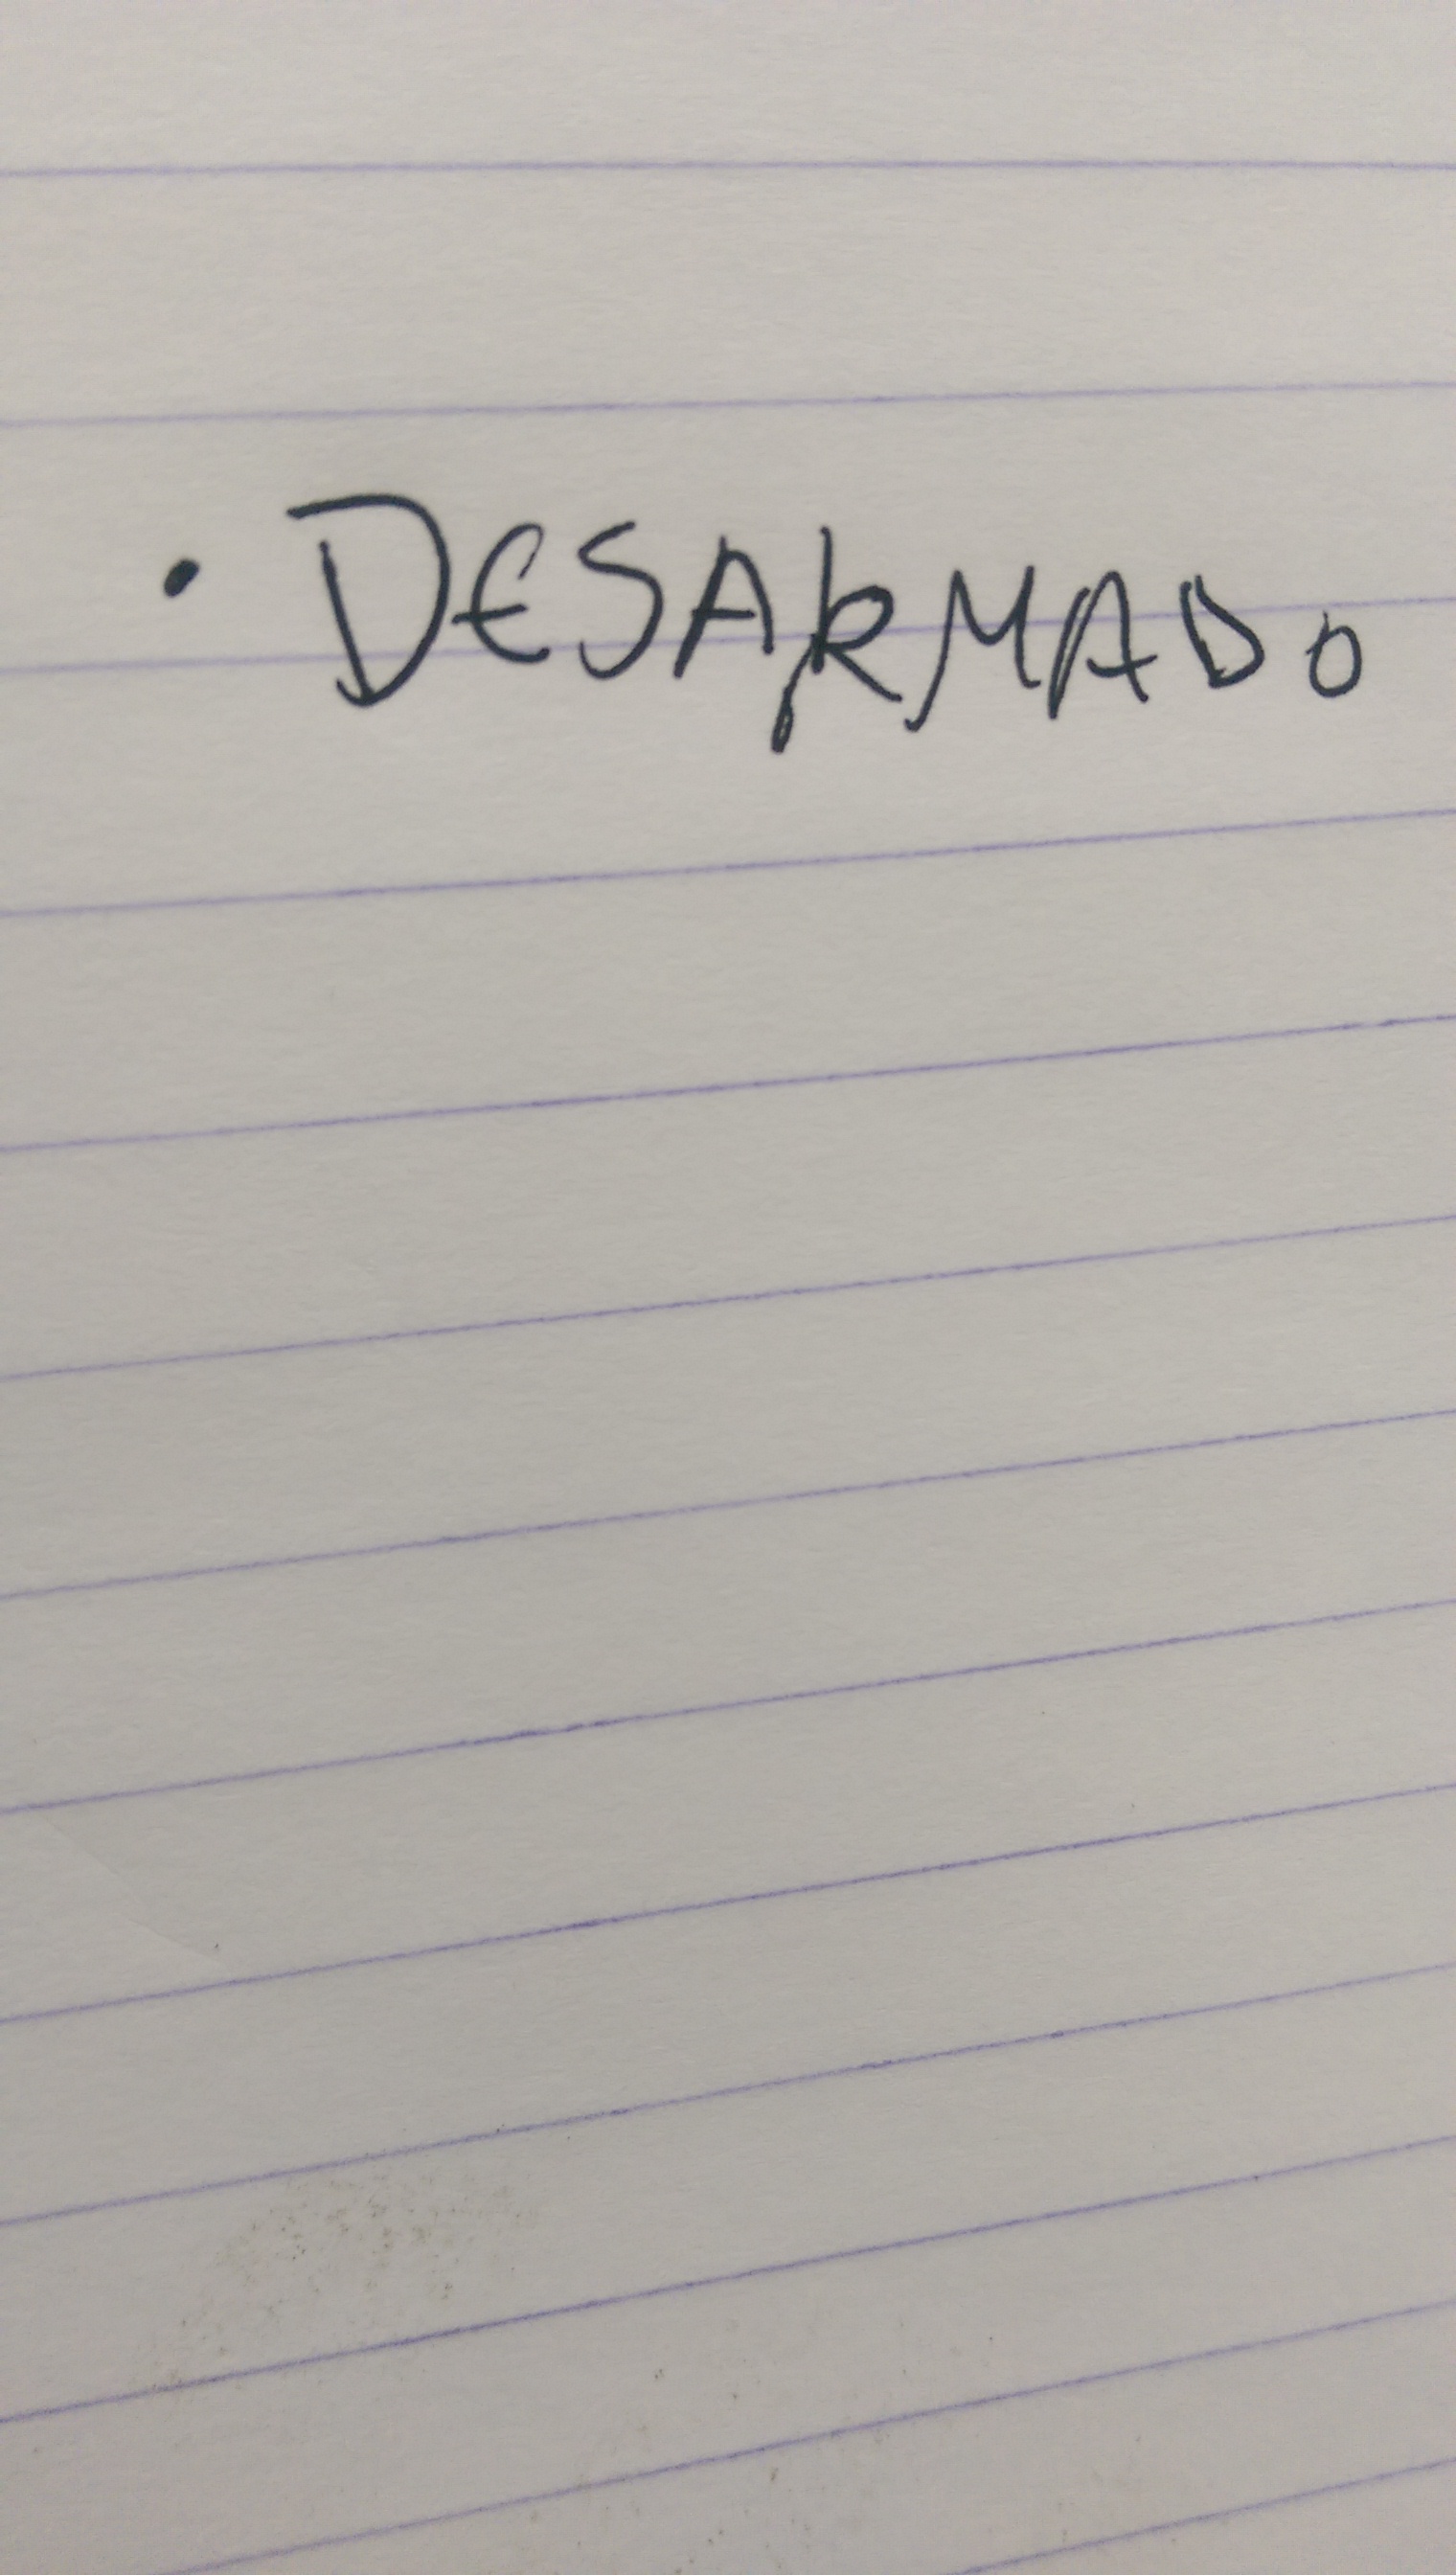 · DESARMADO